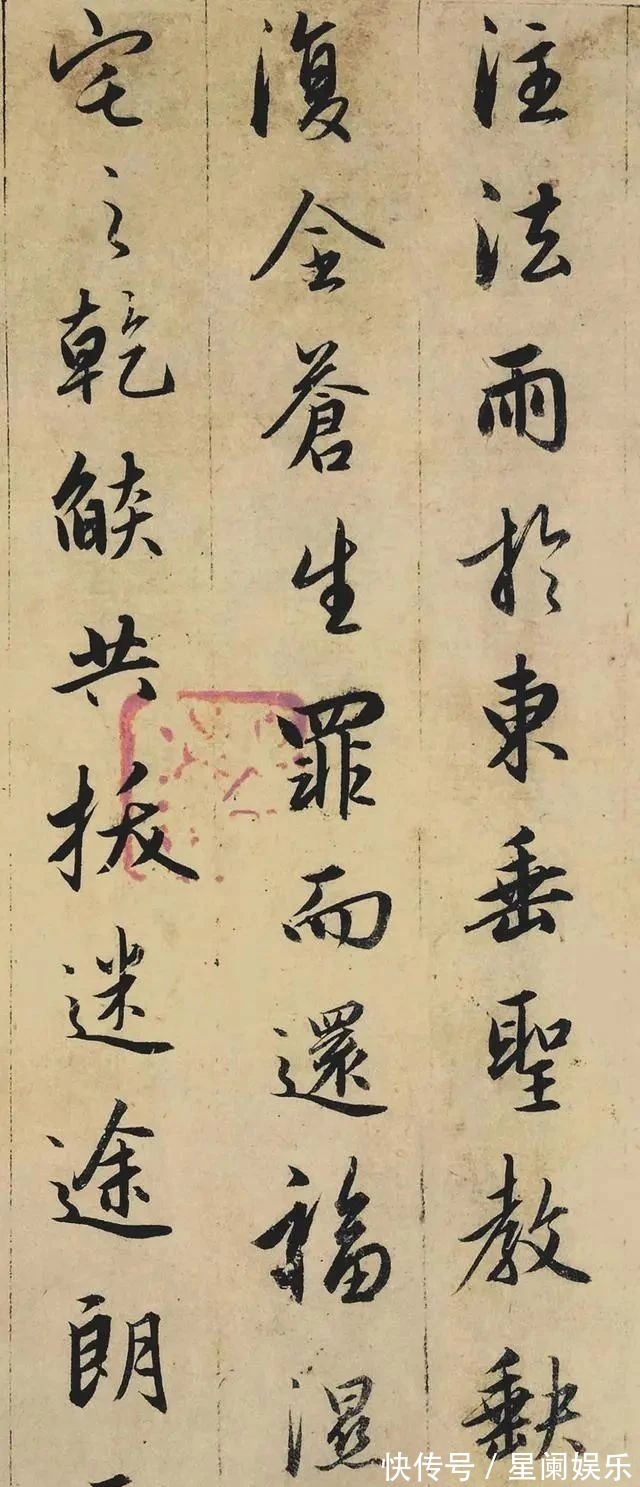 注法雨於東垂聖教缺
復全蒼生罪而還福濕
宅之乾燄共拔迷途朗
快传号 / 星阑娱乐